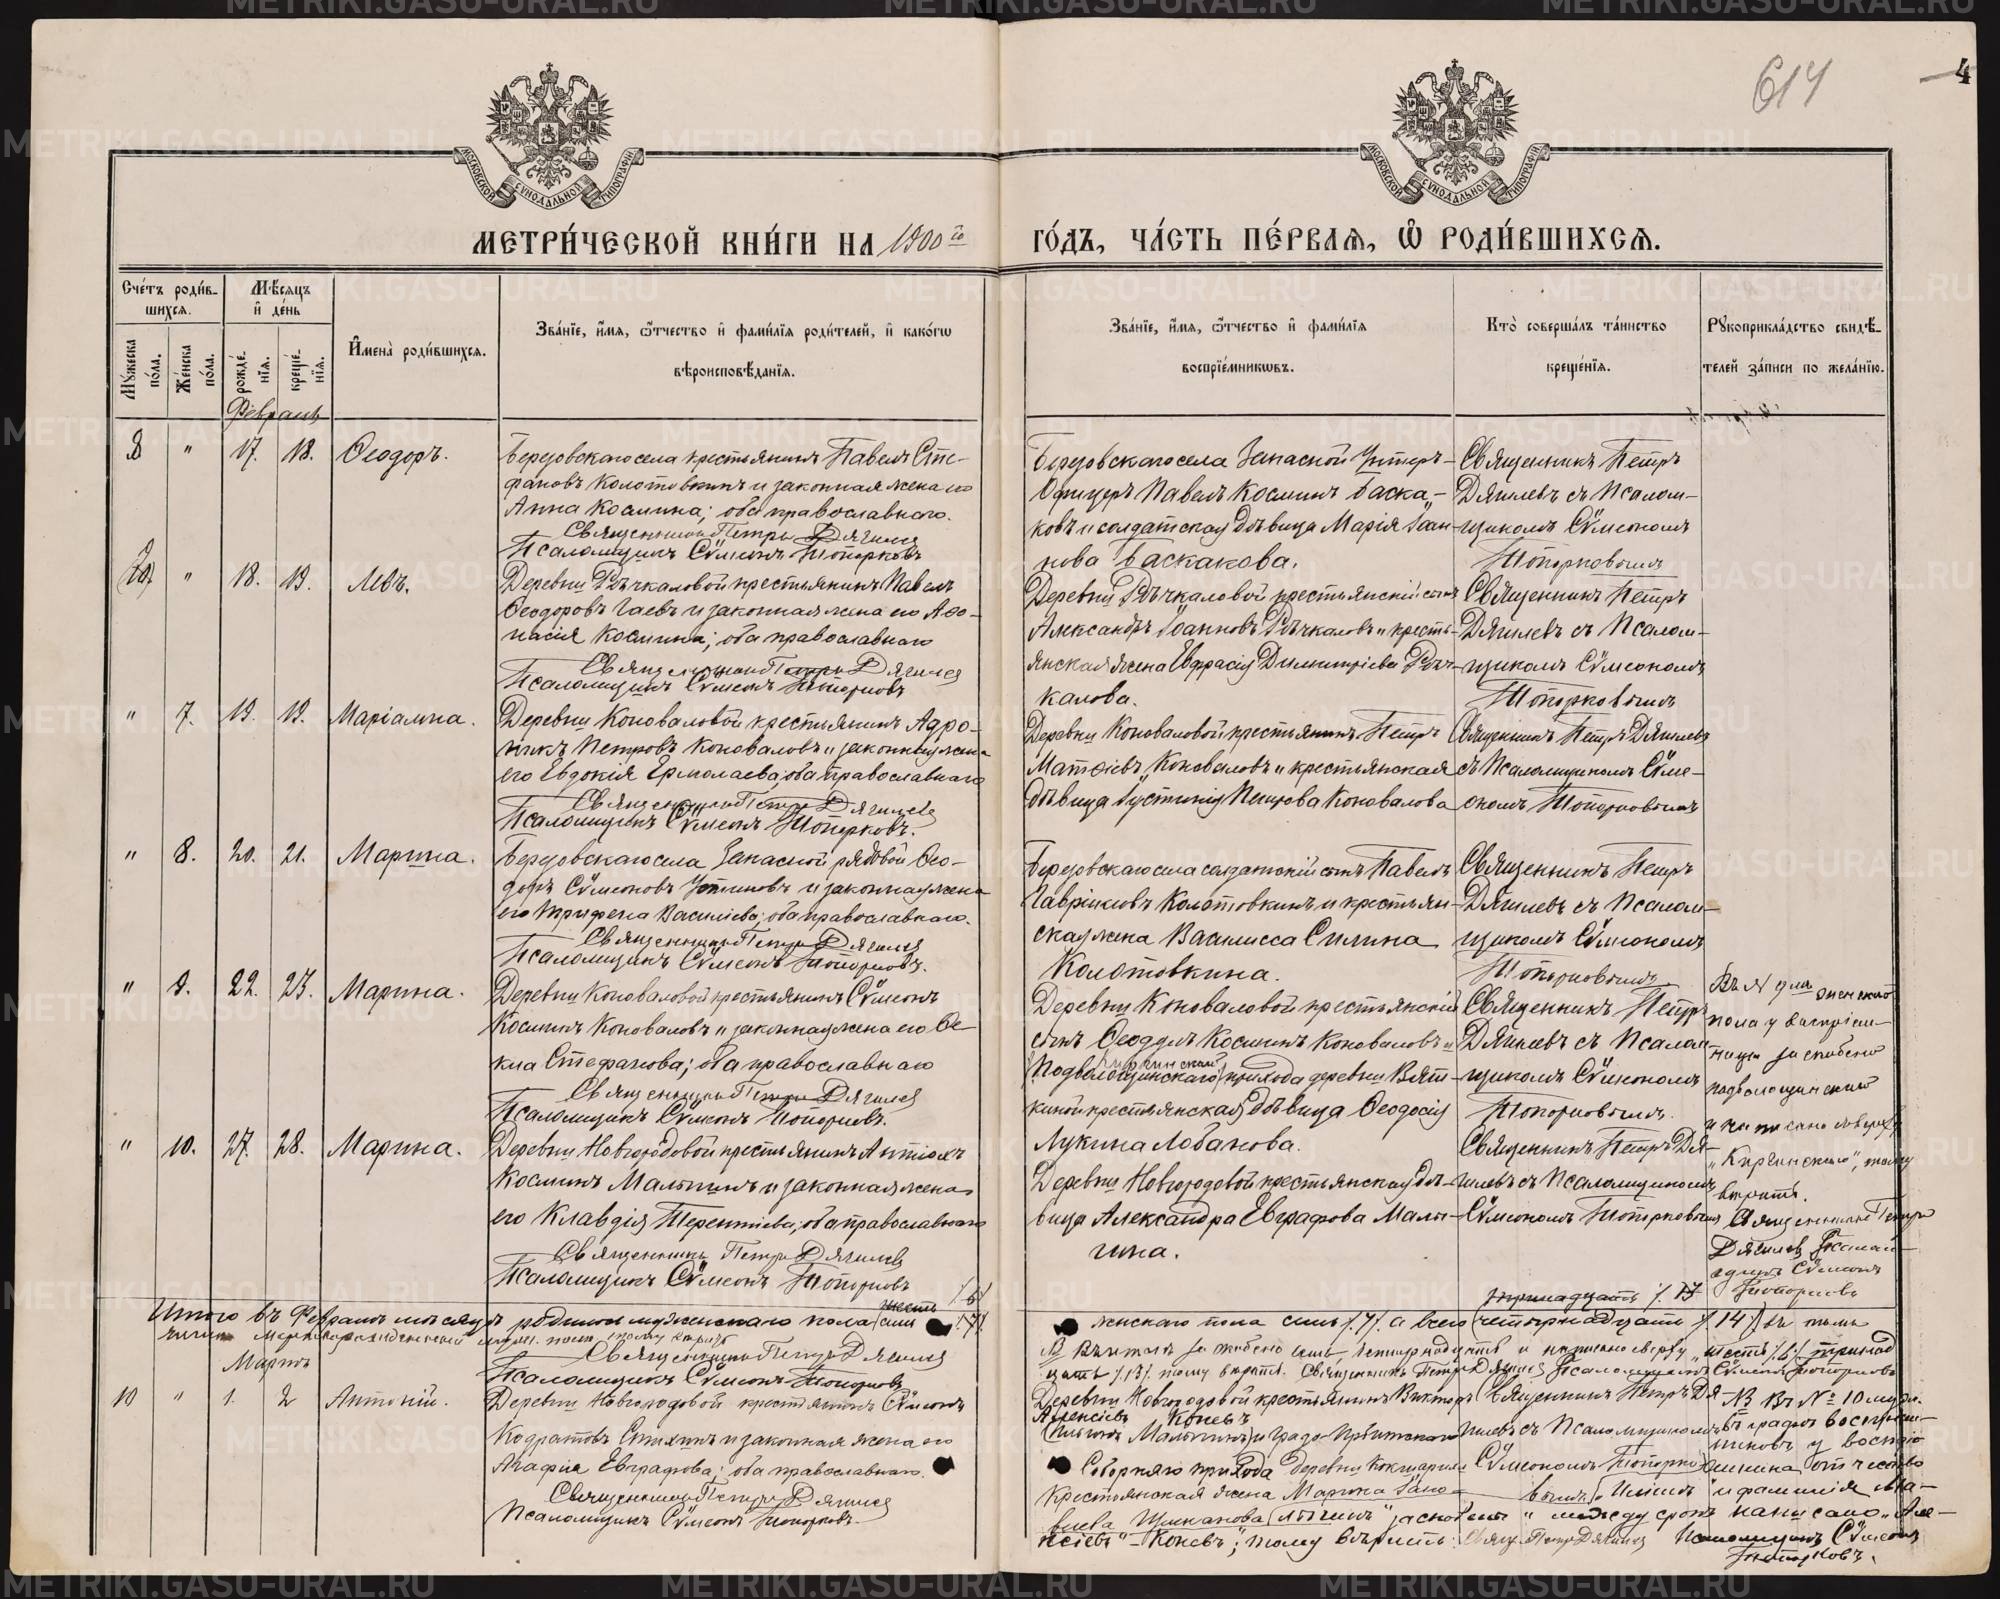 614
4
МОСКОВСКОЙ СѴНОДАЛЬНОЙ ТИПОГРАФІИ
МОСКОВСКОЙ СѴНОДАЛЬНОЙ ТИПОГРАФІИ
МЕТРИ́ЧЕСКОЙ КНИ́ГИ НА 1900го ГО́ДЪ, ЧА́СТЬ ПЕ́РВАЯ, Ѡ РОДИ́ВШИХСЯ.
Сче́тъ роди́вшихся.
Му́жеска по́ла.
Же́нска по́ла.
Мѣ́сяцъ и де́нь
рожде́нія.
креще́нія.
Имена̀ роди́вшихся.
Зва́ніе, и́мя, ѻ́тчество и фами́лія роди́телей, и како́гѡ вѣроисповѣ́данія.
Зва́ніе, и́мя, ѻ́тчество и фами́лія воспріе́мникѡвъ.
Кто̀ соверша́лъ та́инство креще́нія.
Рукоприкла́дство свидѣ́телей за́писи по жела́нію.
Февраль
8 " 17. 18. Ѳеодоръ.
Березовскаго села крестьянинъ Павелъ Сте-
фановъ Колотовкинъ и законная жена его
Анна Космина; оба православнаго.
Священникъ Петръ Дягилевъ
Псаломщикъ Сѵмеонъ Топорковъ
Березовскаго села Запасной Унтеръ-
Офицеръ Павелъ Косминъ Баска-
ковъ и солдатская дѣвица Марія Іоан-
нова Баскакова.
Священникъ Петръ
Дягилевъ съ Псалом-
щикомъ Сѵмеономъ
Топорковымъ
" 18. 19. Левъ.
Деревни Рѣчкаловой крестьянинъ Павелъ
Ѳеодоровъ Гаевъ и законная жена его
Космина; оба православнаго
Священникъ Петръ Дягилевъ
Псаломщикъ Сѵмеонъ Топорковъ
Деревни Рѣчкаловой крестьянскій сынъ
Александръ Іоанновъ Рѣчкаловъ и кресть-
янская жена Евфрасія Димитріева Рѣч-
калова.
Священникъ Петръ
Дягилевъ съ Псалом-
щикомъ Сѵмеономъ
Топорковымъ
" 7. 19. 19. Маріамна.
Деревни Коноваловой крестьянинъ Адро-
никъ Петровъ Коноваловъ и законная жена
его Евдокія Ермолаева; оба православнаго
Священникъ Петръ Дягилевъ
Псаломщикъ Сѵмеонъ Топорковъ.
Деревни Коноваловой крестьянинъ Петръ
Матѳіевъ Коноваловъ и крестьянская
дѣвица Іустинія Петрова Коновалова
Священникъ Петръ Дягилевъ
съ Псаломщикомъ Сѵме-
ономъ Топорковымъ
" 8. 20. 21. Марина.
Березовскаго села Запасной рядовой Ѳео-
доръ Сѵмеоновъ Устиновъ и законная жена
его Трифена Василіева; оба православнаго.
Священникъ Петръ Дягилевъ
Псаломщикъ Сѵмеонъ Топорковъ.
Березовскаго села солдатскій сынъ Павелъ
Гавріиловъ Колотовкинъ и крестьян-
ская жена Василисса Силина
Колотовкина.
Священникъ Петръ
Дягилевъ съ Псалом-
щикомъ Сѵмеономъ
Топорковымъ
" 9. 22. 23. Марина.
Деревни Коноваловой крестьянинъ Сѵмеонъ
Косминъ Коноваловъ и законная жена его Ѳе-
кла Стефанова; оба православнаго
Священникъ Петръ Дягилевъ
Псаломщикъ Сѵмеонъ Топорковъ.
Деревни Коноваловой крестьянскій
сынъ Косминъ Коноваловъ и
Киргинской
Подволощинскаго прихода деревни Вят-
киной крестьянская дѣвица Ѳеодосія
Лукина Лобанова.
Священникъ Петръ
Дягилевъ съ Псалом-
щикомъ Сѵмеономъ
Топорковымъ.
Въ № 9мъ женскаго
пола у воспріем-
ницы заскоблено
подволощинский
и написано сверху
„Киргинской", тому
вѣрить.
Священникъ Петръ
Дягилевъ Псалом-
щикъ Сѵмеонъ
Топорковъ
" 10. 27. 28. Марина.
Деревни Новгородовой крестьянинъ Антіохъ
Косминъ Малыгинъ и законная жена
его Клавдія Терентіева; оба православнаго
Священникъ Петръ Дягилевъ
Псаломщикъ Сѵмеонъ Топорковъ
Деревни Новгородовой крестьянская дѣ-
вица Александра Евграфова Малы-
гина.
Священникъ Петръ Дя-
гилевъ съ Псаломщикомъ
Сѵмеономъ Топорковымъ
Итого въ Февралѣ мѣсяцѣ родилось мужескаго пола шесть /6/ семь /7/
женскаго пола семь /7/ а всего тринадцать /13 четырнадцать /14/
Священникъ Петръ Дягилевъ
Псаломщикъ Сѵмеонъ Топорковъ
тому вѣрить. Священникъ Петръ Дягилевъ Псаломщикъ Сѵмеонъ Топорковъ
Мартъ
10 " 1. 2 Антоній.
Деревни Новгородовой крестьянинъ Сѵмеонъ
Кодратовъ и законная жена его
Агафія Евграфова; оба православнаго.
Священникъ Петръ Дягилевъ
Псаломщикъ Сѵмеонъ Топорковъ.
Деревни Новгородовой крестьянинъ Викторъ
Алексіевъ Коневъ
Малыгинъ и Градо-Ирбитскаго
Соборнаго прихода деревни Кокшариха
Крестьянская жена Марина
Священникъ Петръ Дя-
гилевъ съ Псаломщикомъ
Сѵмеономъ Топорко-
вымъ
въ № 10 муж.
въ графѣ воспріем-
никовъ у воспріе-
мника отчество
и фамилія
между строкъ написано „Але-
ксіевъ" – Коневъ"; тому вѣрить: Свящ. Петръ Дягилевъ Псаломщикъ Сѵмеонъ
Топорковъ.
METRIKI.GASO-URAL.RU